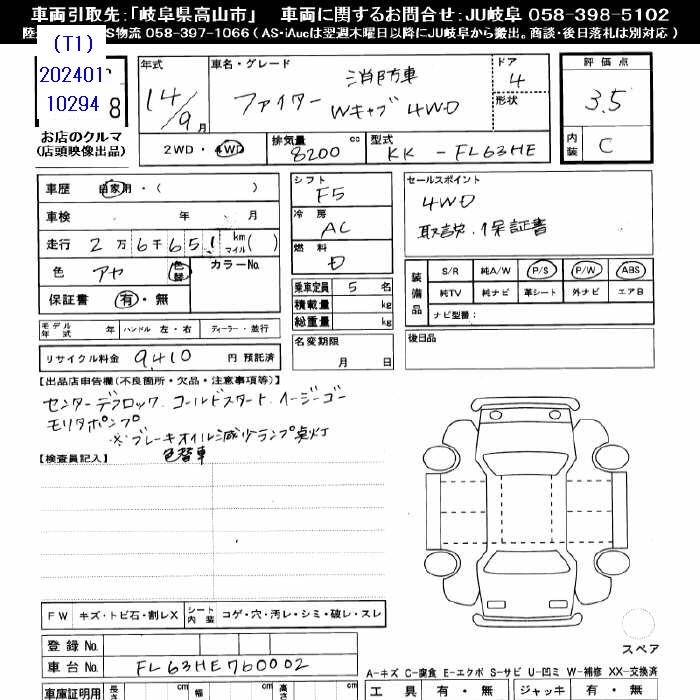 車両引取先:「岐阜県高山市」 車両に関するお問合せ:JU岐阜 058-398-5102
S物流 058-397-1066 ( AS・iAucは翌週木曜日以降にJU岐阜から搬出。商談・後日落札は別対応 )
(T1)
202401
10294
8
お店のクルマ
(店頭映像出品)
年式
14/9 月
車名・グレード
消防車
ファイター Wキャブ 4WD
ドア
4
形状
評価点
3.5
内装
C
2WD・4WD
排気量
8200 cc
型式
KK - FL63HE
車歴 自家用・( )
車検 年 月
走行 2万6千651 km マイル ( )
色 アカ 色替 カラーNo.
保証書 有・無
モデル年式 年 ハンドル 左・右 ディーラー・並行
リサイクル料金 9,410 円 預託済
シフト
F5
冷房
AC
燃料
D
乗車定員 5 名
積載量 kg
総重量 kg
名変期限
月 日
セールスポイント
4WD
取説、保証書
装備品
S/R 純A/W P/S P/W ABS
純TV 純ナビ 革シート 外ナビ エアB
ナビ型番:
後日品
【出品店申告欄(不良箇所・欠品・注意事項等)】
センターデフロック、コールドスタート、イージーゴー
モリタポンプ
※ブレーキオイル減少ランプ点灯
【検査員記入】
色替車
FW キズ・トビ石・割レX シート内装 コゲ・穴・汚レ・シミ・破レ・スレ
登録No.
車台No. FL63HE760002
車庫証明用 長さ cm 幅 cm 高さ cm
スペア
A-キズ C-腐食 E-エクボ S-サビ U-凹ミ W-補修 XX-交換済
工具 有・無 ジャッキ 有・無